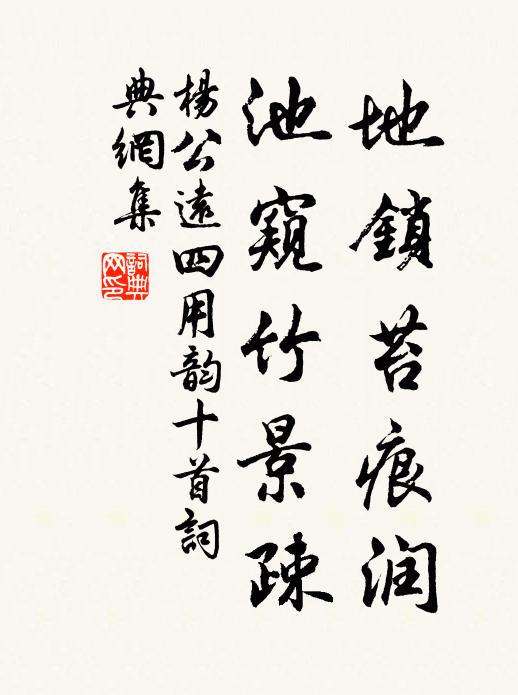 地鎖苔痕润
池窺竹景疎
楊公遠四用韵十首詞
典網集
詞典网印